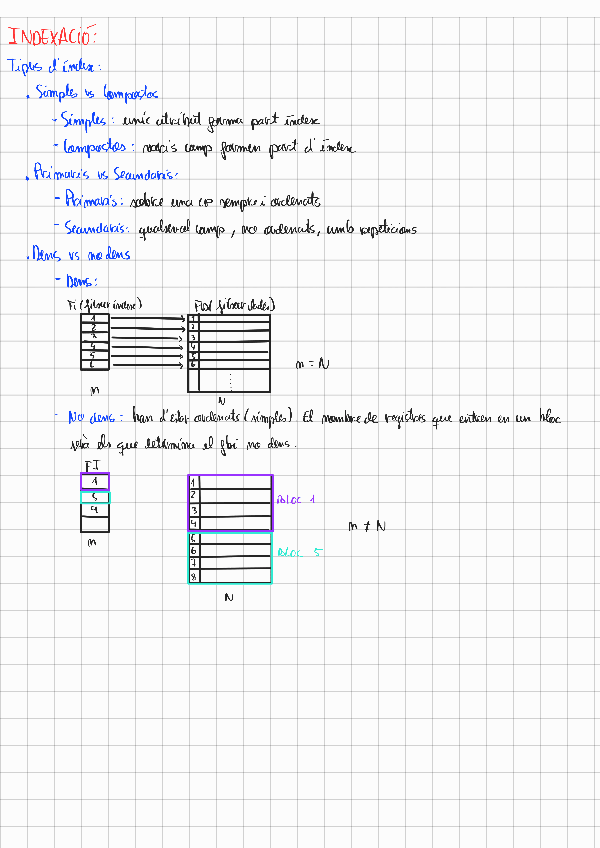 INDEXACIÓ:
Tipus d'índex:
. Simples vs Compostos
- Simples: unic atribut forma part índex
- Compostos: varis camp formen part d'índex
. Primaris vs Secundaris:
- Primaris: sobre una CP sempre i ordenats
- Secundaris: qualsevol camp, no ordenats, amb repeticions
. Dens vs no dens
- Dens:
Fi (fitxer índex) FD (fitxer dades)
1 1
2 2
3 3
4 4
5 5
6 6
n = N
n N
- No dens: han d'estar ordenats (simples) El nombre de registres que entren en un bloc
serà els que determina el no dens.
FI
1 1
5 2 BLOC 1
9 3
4
n ≠ N
5
n 6 BLOC 5
7
8
N